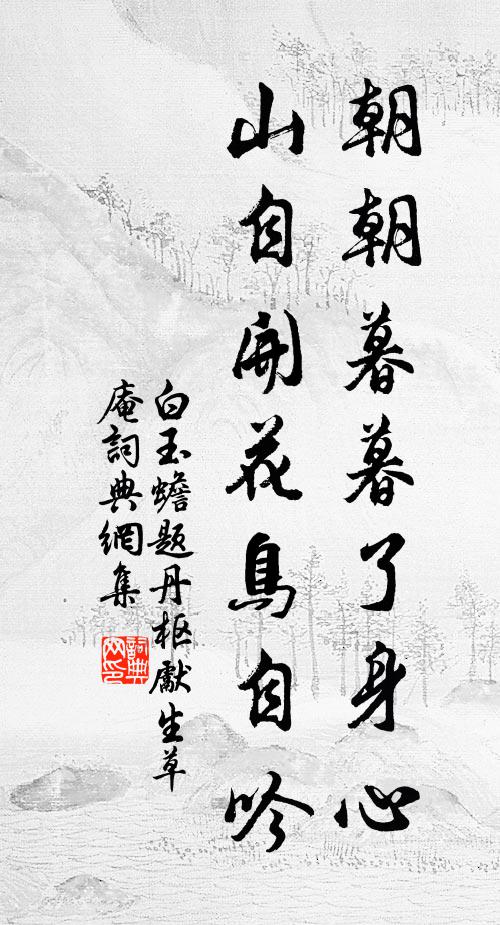 朝朝暮暮了身心
山自開花鳥自吟
白玉蟾題丹樞獻生草
庵詞典網集
詞典
网印